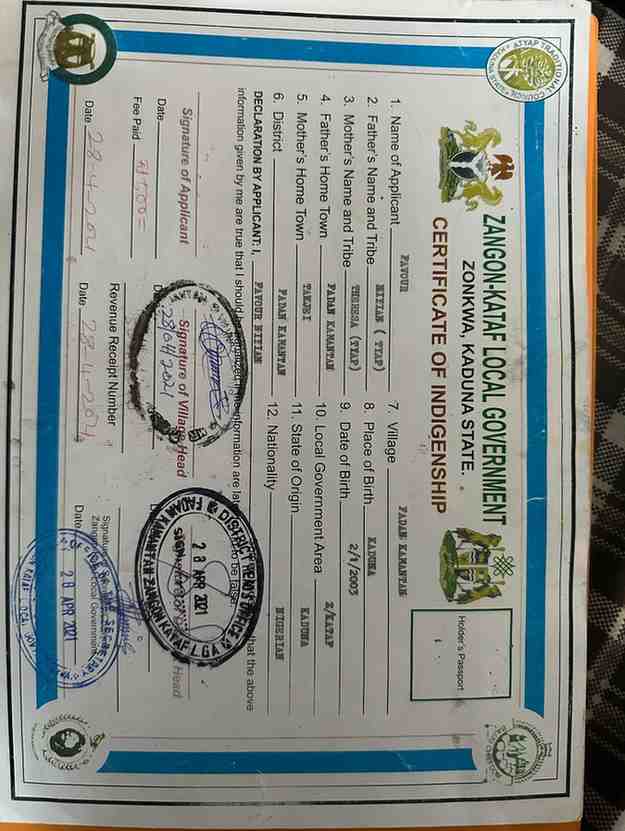 ATYAP TRADITIONAL COUNCIL
ZANGON-KATAF LOCAL GOVERNMENT
ZONKWA, KADUNA STATE.
CERTIFICATE OF INDIGENSHIP
Holder's Passport
1. Name of Applicant FAVOUR
2. Father's Name and Tribe (TYAP)
3. Mother's Name and Tribe THERESA (TYAP)
4. Father's Home Town FADAN KAMANTAN
5. Mother's Home Town
6. District FADAN KAMANTAN
7. Village FADAN KAMANTAN
8. Place of Birth KADUNA
9. Date of Birth 2/1/2003
10. Local Government Area Z/KATAF
11. State of Origin KADUNA
12. Nationality NIGERIAN
DECLARATION BY APPLICANT: I, FAVOUR that the above
information given by me are true that I should be information are to be false
Signature of Applicant
Signature of Village Head
Head
Date
28/04/2021
DISTRICT HEAD'S OFFICE
28 APR 2021
FADAN KAMANTAN ZANGON KATAF L.G.A
Fee Paid ₦500=
Revenue Receipt Number
Signature
Local Government
Date 28-4-2021
Date 28-4-2021
Date
OFFICE OF THE SECRETARY
28 APR 2021